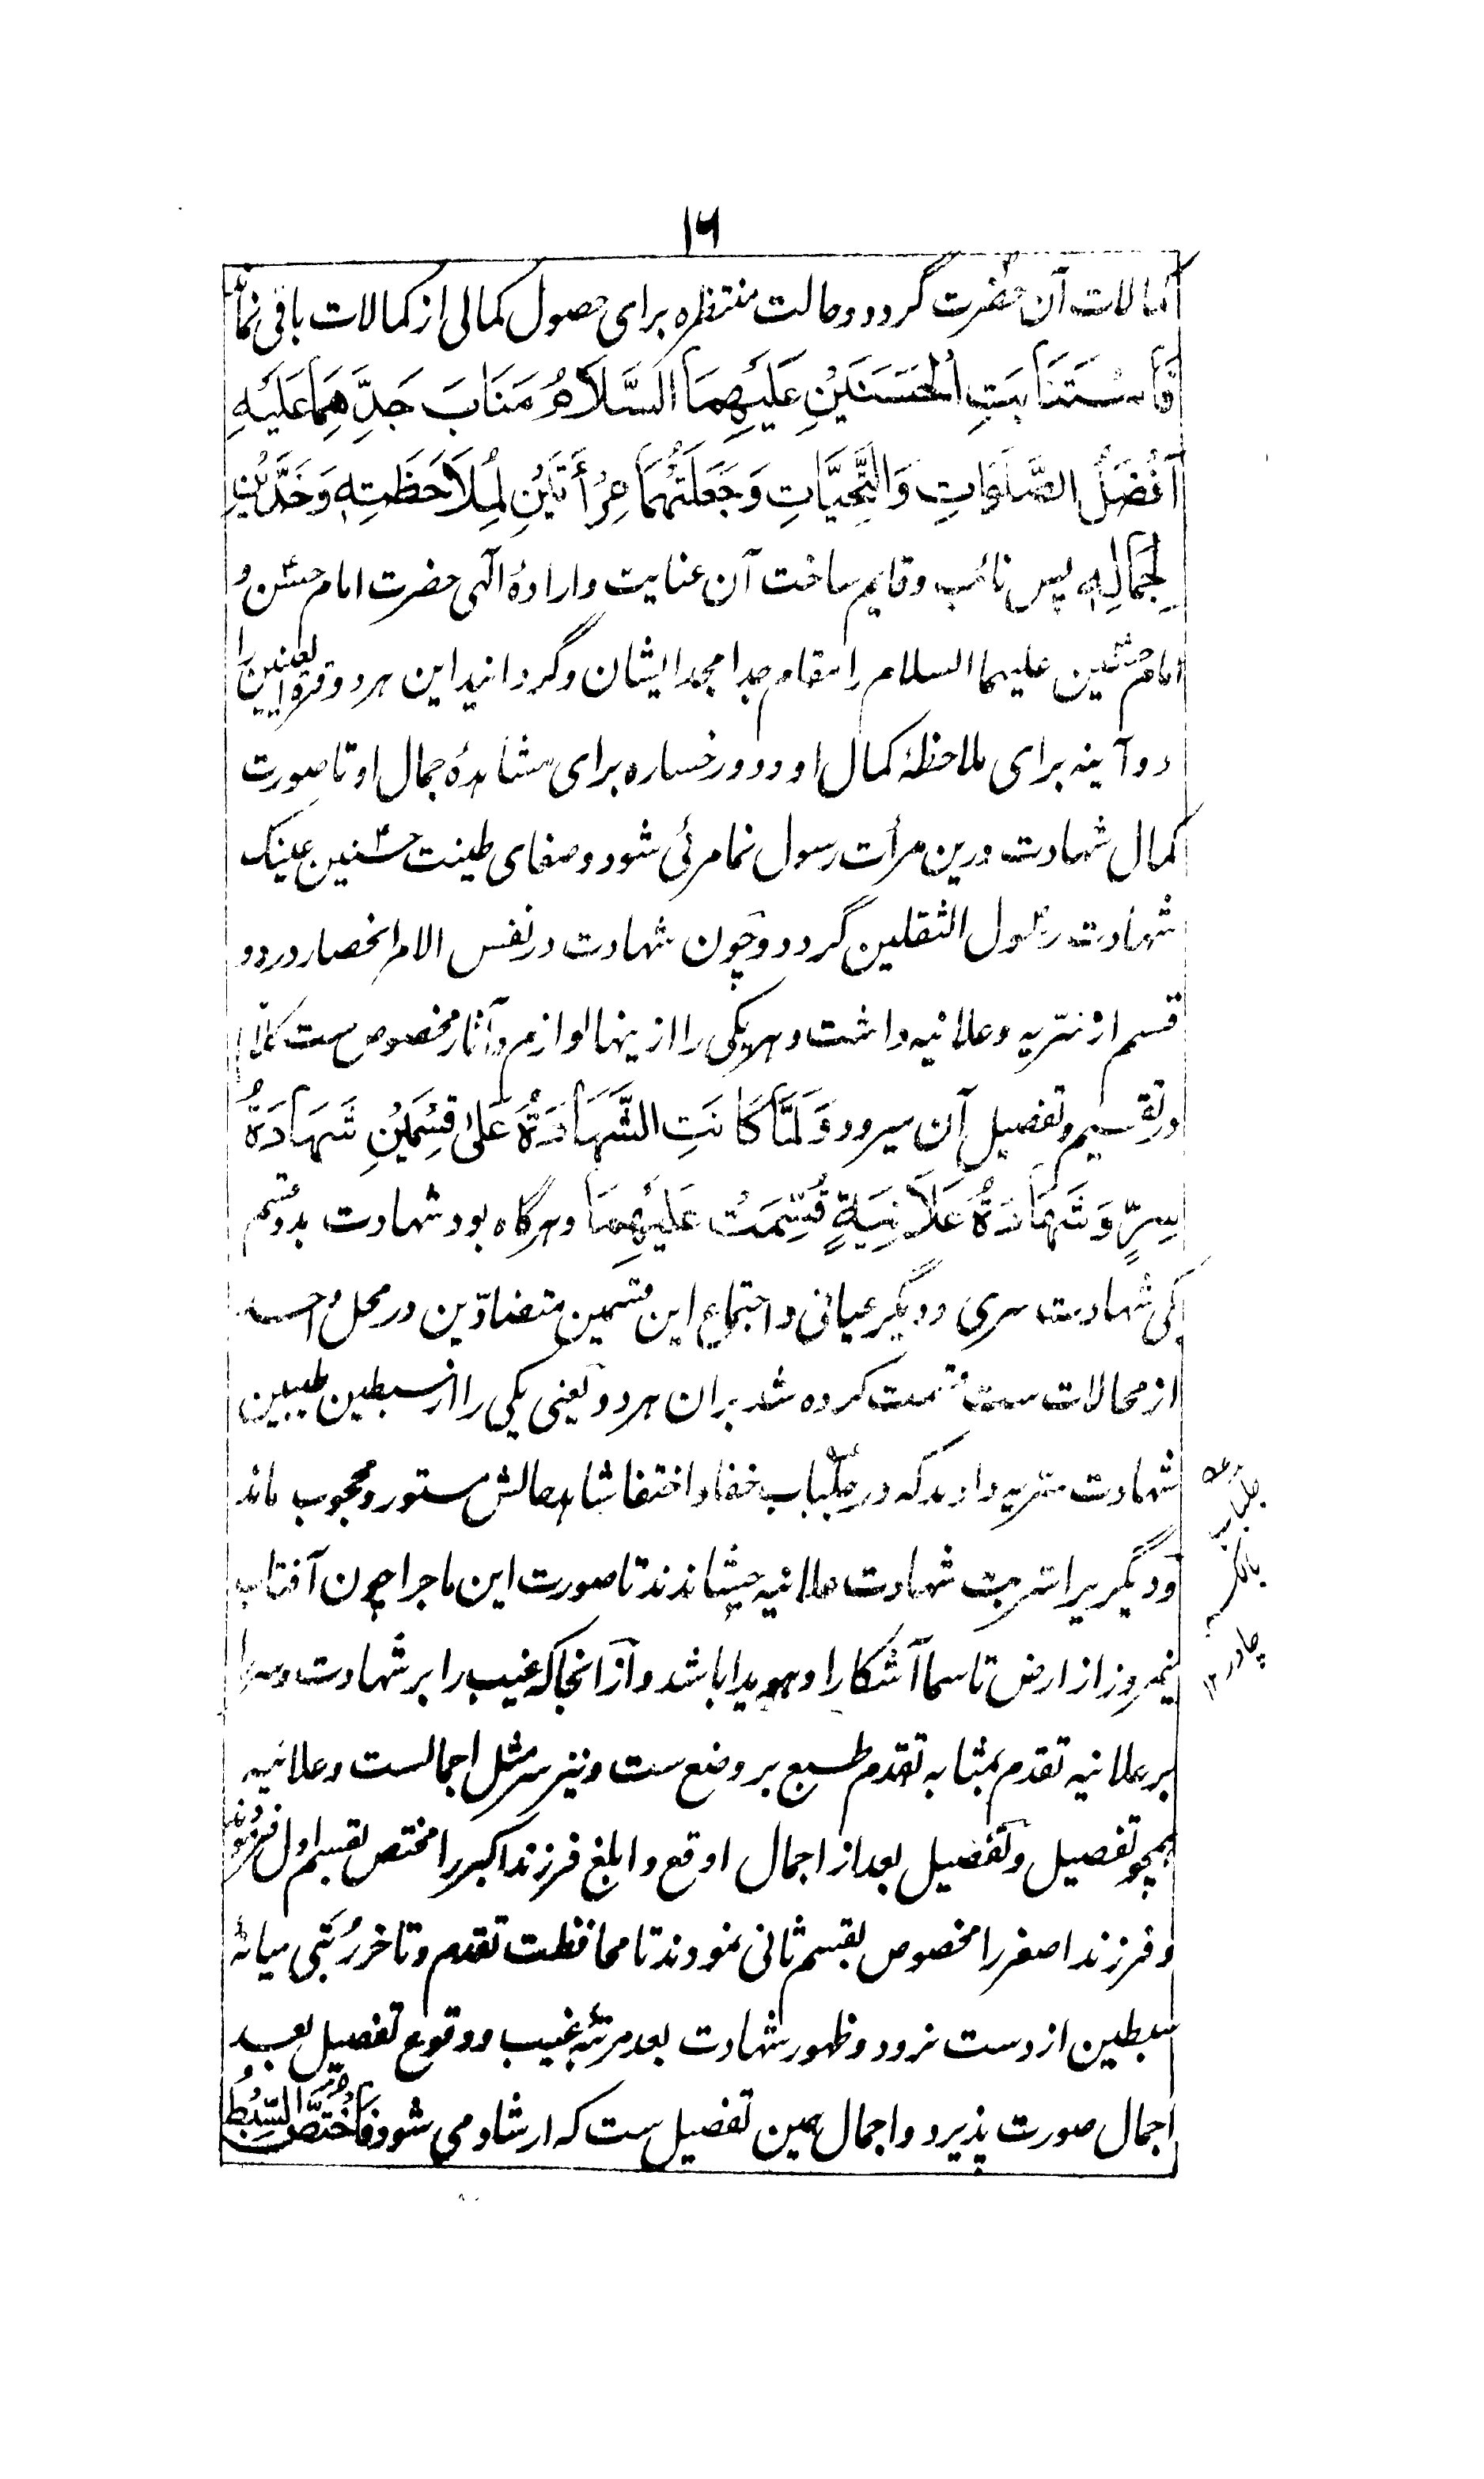 ۱۶
کمالات آن حضرت گردد و حالت منتظره برای حصول کمالی از کمالات باقی نماند
فَاسْتَنَابَتِ الْحَسَنَيْنِ عَلَيْهِمَا السَّلَامُ مَنَابَ جَدِّهِمَا عَلَيْهِ
اَفْضَلُ الصَّلَوَاتِ وَالتَّحِيَّاتِ وَجَعَلَتْهُمَا مِرْأَتَيْنِ لِمُلَاحَظَتِهٖ وَخَدَّيْنِ
لِجَمَالِهٖ پس نائب و قایم ساخت آن عنایت و ارادۂ الٰهی حضرت امام حسن و
امام حسین علیهما السلام را مقام جد امجد ایشان و گردانید این هر دو قرة العینین را
دو آینه برای ملاحظۂ کمال او و دو رخساره برای مشاهدۂ جمال او تا صورت
کمال شهادت درین مرأت رسول نما مرئی شود و صفای طینت حسنین عینک
شهادت رسول الثقلین گردد و چون شهادت در نفس الامر انحصار در دو
قسم از سریه و علانیه داشت و هر یکی را ازینها لوازم و آثار مخصوص ست کلام
در تقسیم و تفصیل آن میرود وَلَمَّا كَانَتِ الشَّهَادَةُ عَلٰى قِسْمَيْنِ شَهَادَةُ
سِرٍّ وَشَهَادَةُ عَلَانِيَةٍ قُسِّمَتْ عَلَيْهِمَا و هرگاه بود شهادت بدو قسم
یکی شهادت سری و دیگر عیانی و اجتماع این قسمین متضادّین در محل واحد
از محالات ست قسمت کرده شد بران هر دو یعنی یکی را از سبطین طیبین
شهادت سریه دادند که در جلباب خفا و اختفا شاهد حالش مستور و محجوب ماند
و دیگریرا شربت شهادت علانیه چشاندند تا صورت این ماجرا چون آفتاب
نیمروز از ارض تا سما آشکارا و هویدا باشد و از انجا که غیب را بر شهادت و سر را
بر علانیه تقدم بمثابه تقدم طبع بر وضع ست و نیز سر مثل اجمالست و علانیه
همچو تفصیل و تفصیل بعد از اجمال اوقع و ابلغ فرزند اکبر را مختص بقسم اول فرمودند
و فرزند اصغر را مخصوص بقسم ثانی نمودند تا محافظت تقدم و تاخر رتبی میانۂ
سبطین از دست نرود و ظهور شهادت بعد مرتبۂ غیب و وقوع تفصیل بعد
اجمال صورت پذیرد و اجمال همین تفصیل ست که ارشاد می شود فَاخْتَصَّ السِّبْطُ
جلباب
بالکسر
چادر ۱۲